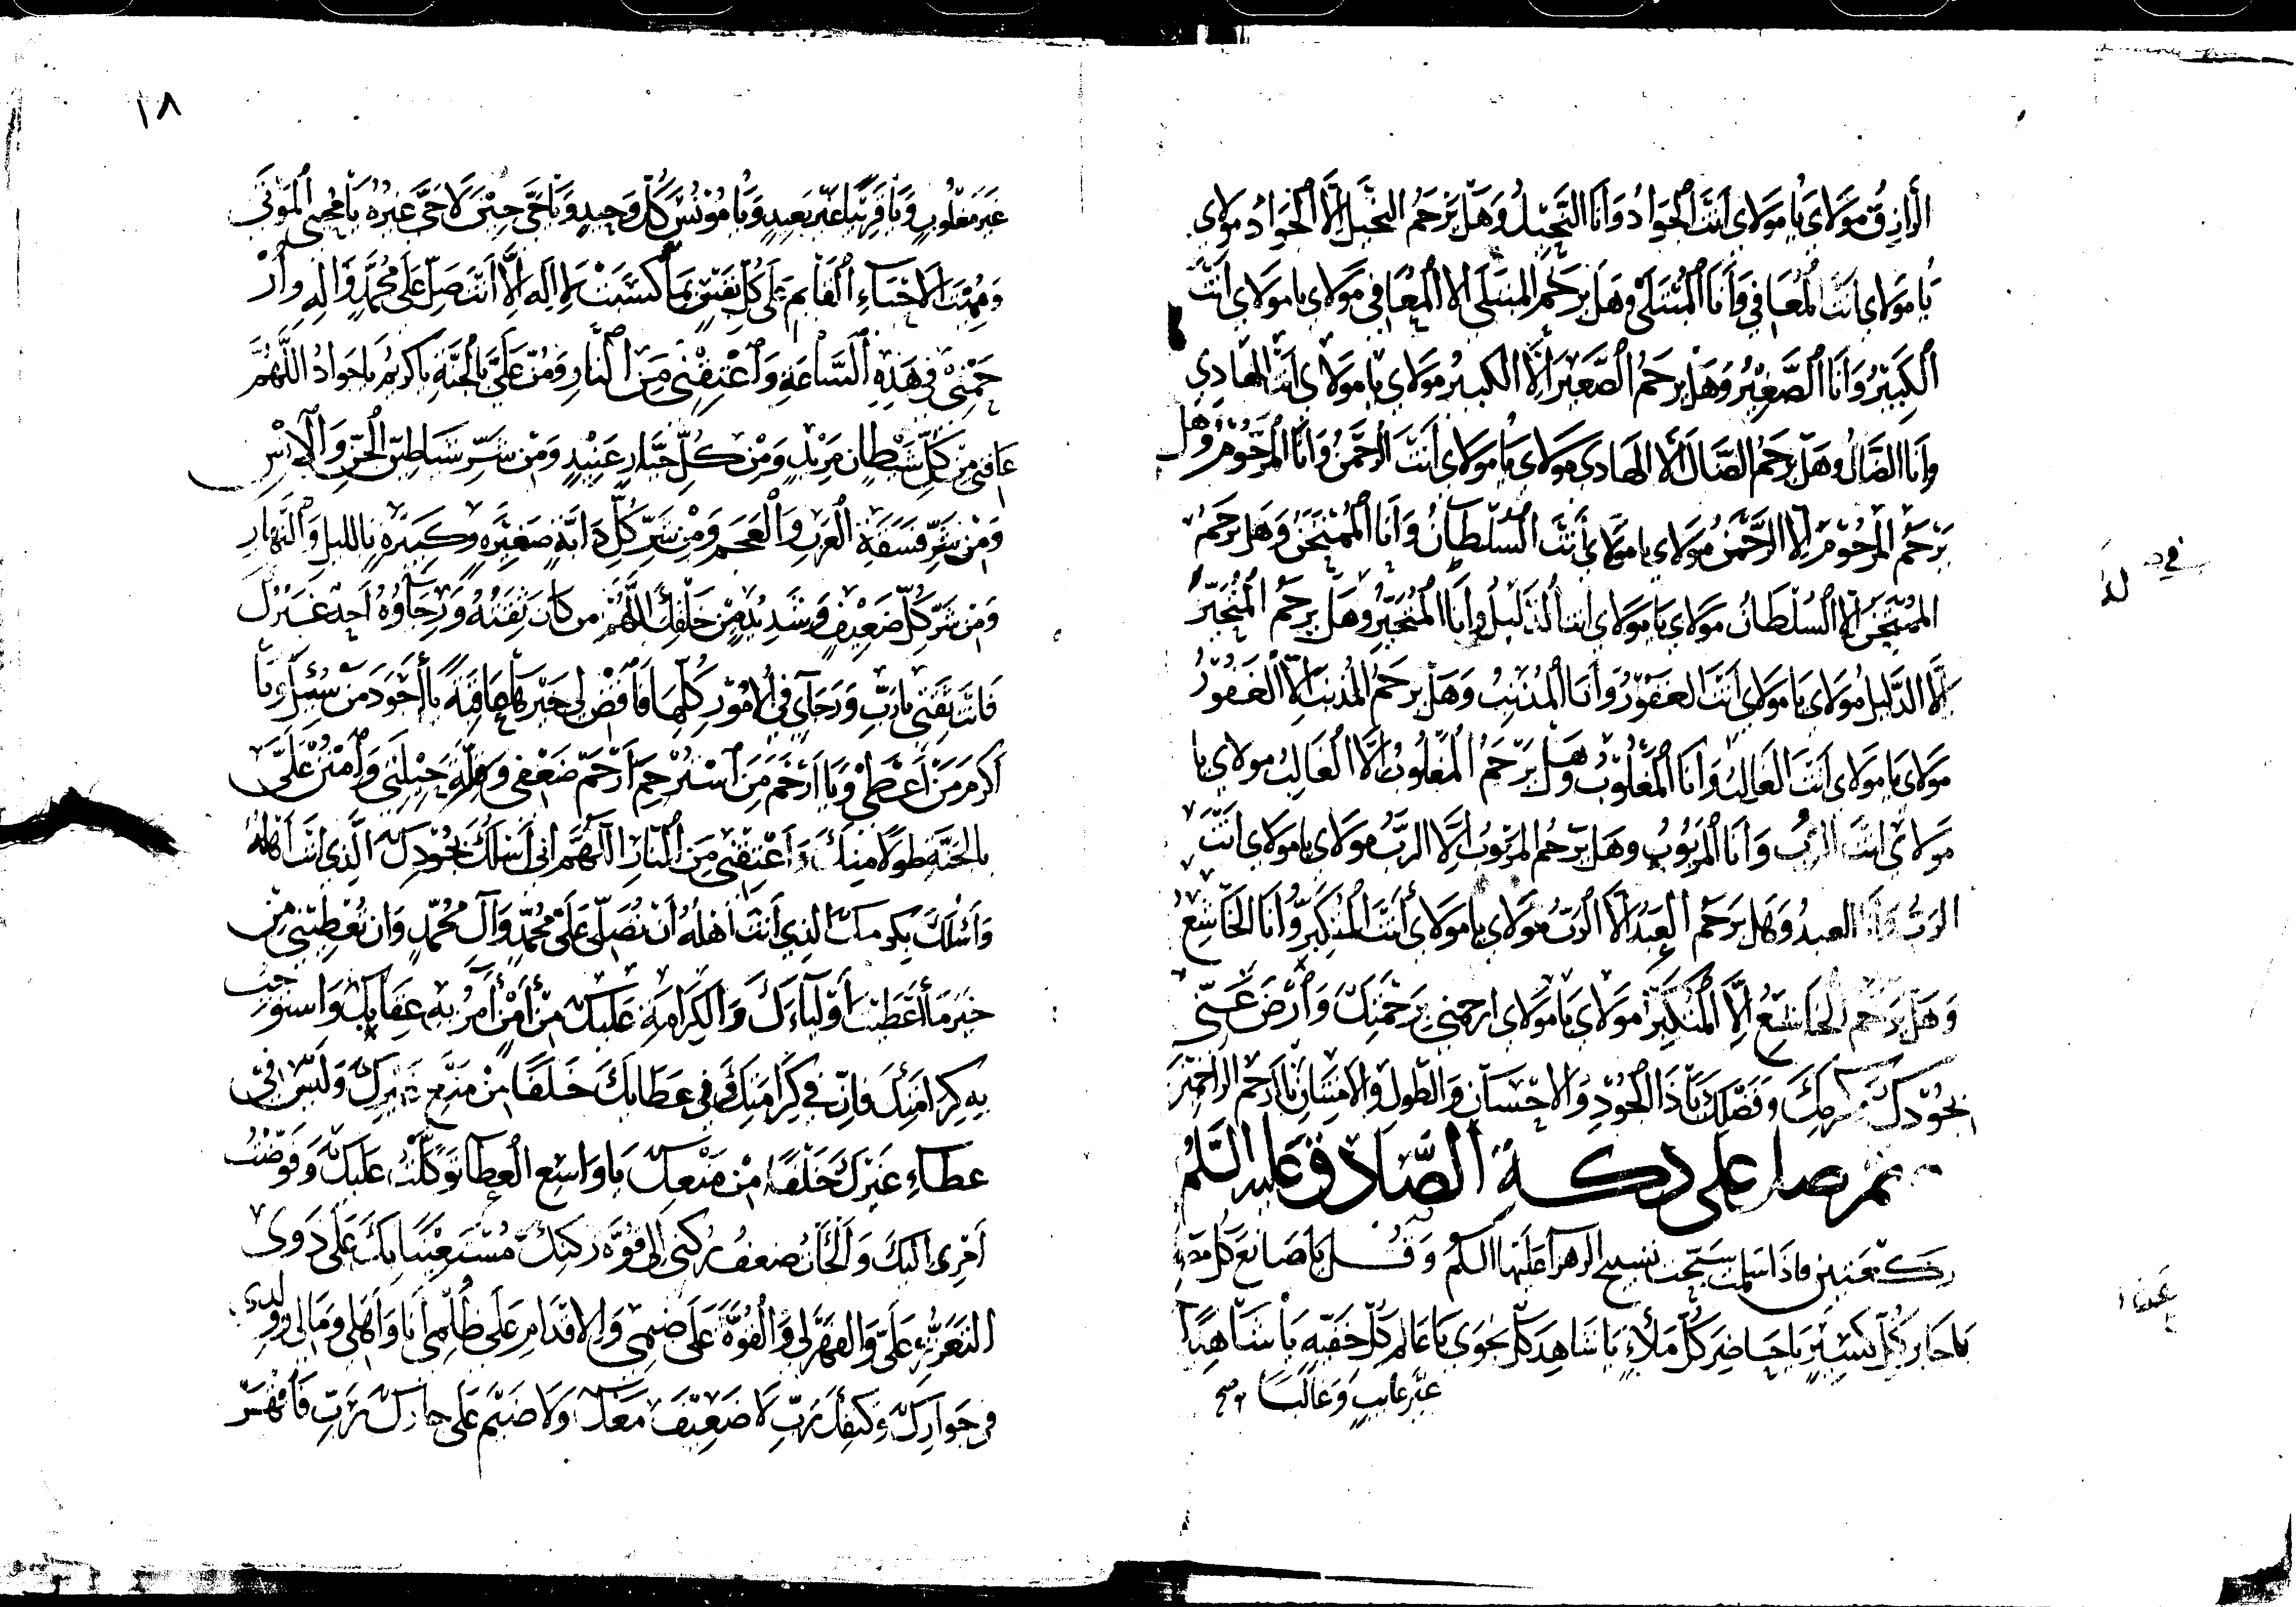 الرازق مولاي يا مولاي أنت الجواد وأنا البخيل وهل يرحم البخيل إلا الجواد مولاي
يا مولاي أنت المعافي وأنا المبتلى وهل يرحم المبتلى إلا المعافي مولاي يا مولاي أنت
الكبير وأنا الصغير وهل يرحم الصغير إلا الكبير مولاي يا مولاي أنت الهادي
وأنا الضال وهل يرحم الضال إلا الهادي مولاي يا مولاي أنت الرحمن وأنا المرحوم وهل
يرحم المرحوم إلا الرحمن مولاي يا مولاي أنت السلطان وأنا الممتحن وهل يرحم
الممتحن إلا السلطان مولاي يا مولاي أنت الدليل وأنا المتحير وهل يرحم المتحير
إلا الدليل مولاي يا مولاي أنت الغفور وأنا المذنب وهل يرحم المذنب إلا الغفور
مولاي يا مولاي أنت الغالب وأنا المغلوب وهل يرحم المغلوب إلا الغالب مولاي يا
مولاي أنت الرب وأنا المربوب وهل يرحم المربوب إلا الرب مولاي يا مولاي أنت
الرب وأنا العبد وهل يرحم العبد إلا الرب مولاي يا مولاي أنت المتكبر وأنا الخاشع
وهل يرحم الخاشع إلا المتكبر مولاي يا مولاي ارحمني برحمتك وارض عني
بجودك وكرمك وفضلك يا ذا الجود والاحسان والطول والامتنان يا أرحم الراحمين
ثم صل على دكة الصادق عليه السلم
ركعتين فاذا سلمت سبحت تسبيح الزهرا عليها السلم وقل يا صانع كل مصنوع
يا جابر كل كسير يا حاضر كل ملاء يا شاهد كل نجوى يا عالم كل خفية يا شاهدا
غير غايب وغالبا صح
١٨
غير مغلوب ويا قريبا غير بعيد ويا مونس كل وحيد ويا حي حين لا حي غيره يا محيي الموتى
ومميت الاحياء القايم على كل نفس بما كسبت لا إله إلا أنت صل على محمد واله وار
حمني في هذه الساعة واعتقني من النار ومن علي بالجنة يا كريم يا جواد اللهم
عافني من كل شيطان مريد ومن كل جبار عنيد ومن شر شياطين الجن والانس
ومن شر فسقة العرب والعجم ومن شر كل دابة صغيرة وكبيرة بالليل والنهار
ومن شر كل ضعيف وشديد من خلقك اللهم من كان ثقته ورجاؤه احد غيرك
فانت ثقتي يا رب ورجآي في الامور كلها فاقض لي خيرها عافية يا أجود من سئل ويا
اكرم من أعطى ويا أرحم من استرحم ارحم ضعفي وقلة حيلتي وامنن علي
بالجنة طولا منك واعتقني من النار اللهم اني اسلك بجودك الذي انت أهله
وأسلك بكرمك الذي أنت أهله أن تصلي على محمد وآل محمد وان تعطيني من
خير ما أعطيت أولياءك والكرامة عليك من أمن أمر به عقابك واستوجب
به كرامتك فان في كرامتك وفي عطايك خلفا من منع غيرك وليس في
عطاء غيرك خلفا من منعك يا واسع العطا توكلت عليك وفوضت
امري اليك وألجأت ضعف ركني إلى قوة ركنك مستعينا بك على ذوي
التعزز علي والقهر لي والقوة على ضيمي والاقدام على ظلمي أنا وأهلي ومالي وولدي
في جوارك وكنفك رب لا ضعيف معك ولا ضيم على جارك رب فاقهر